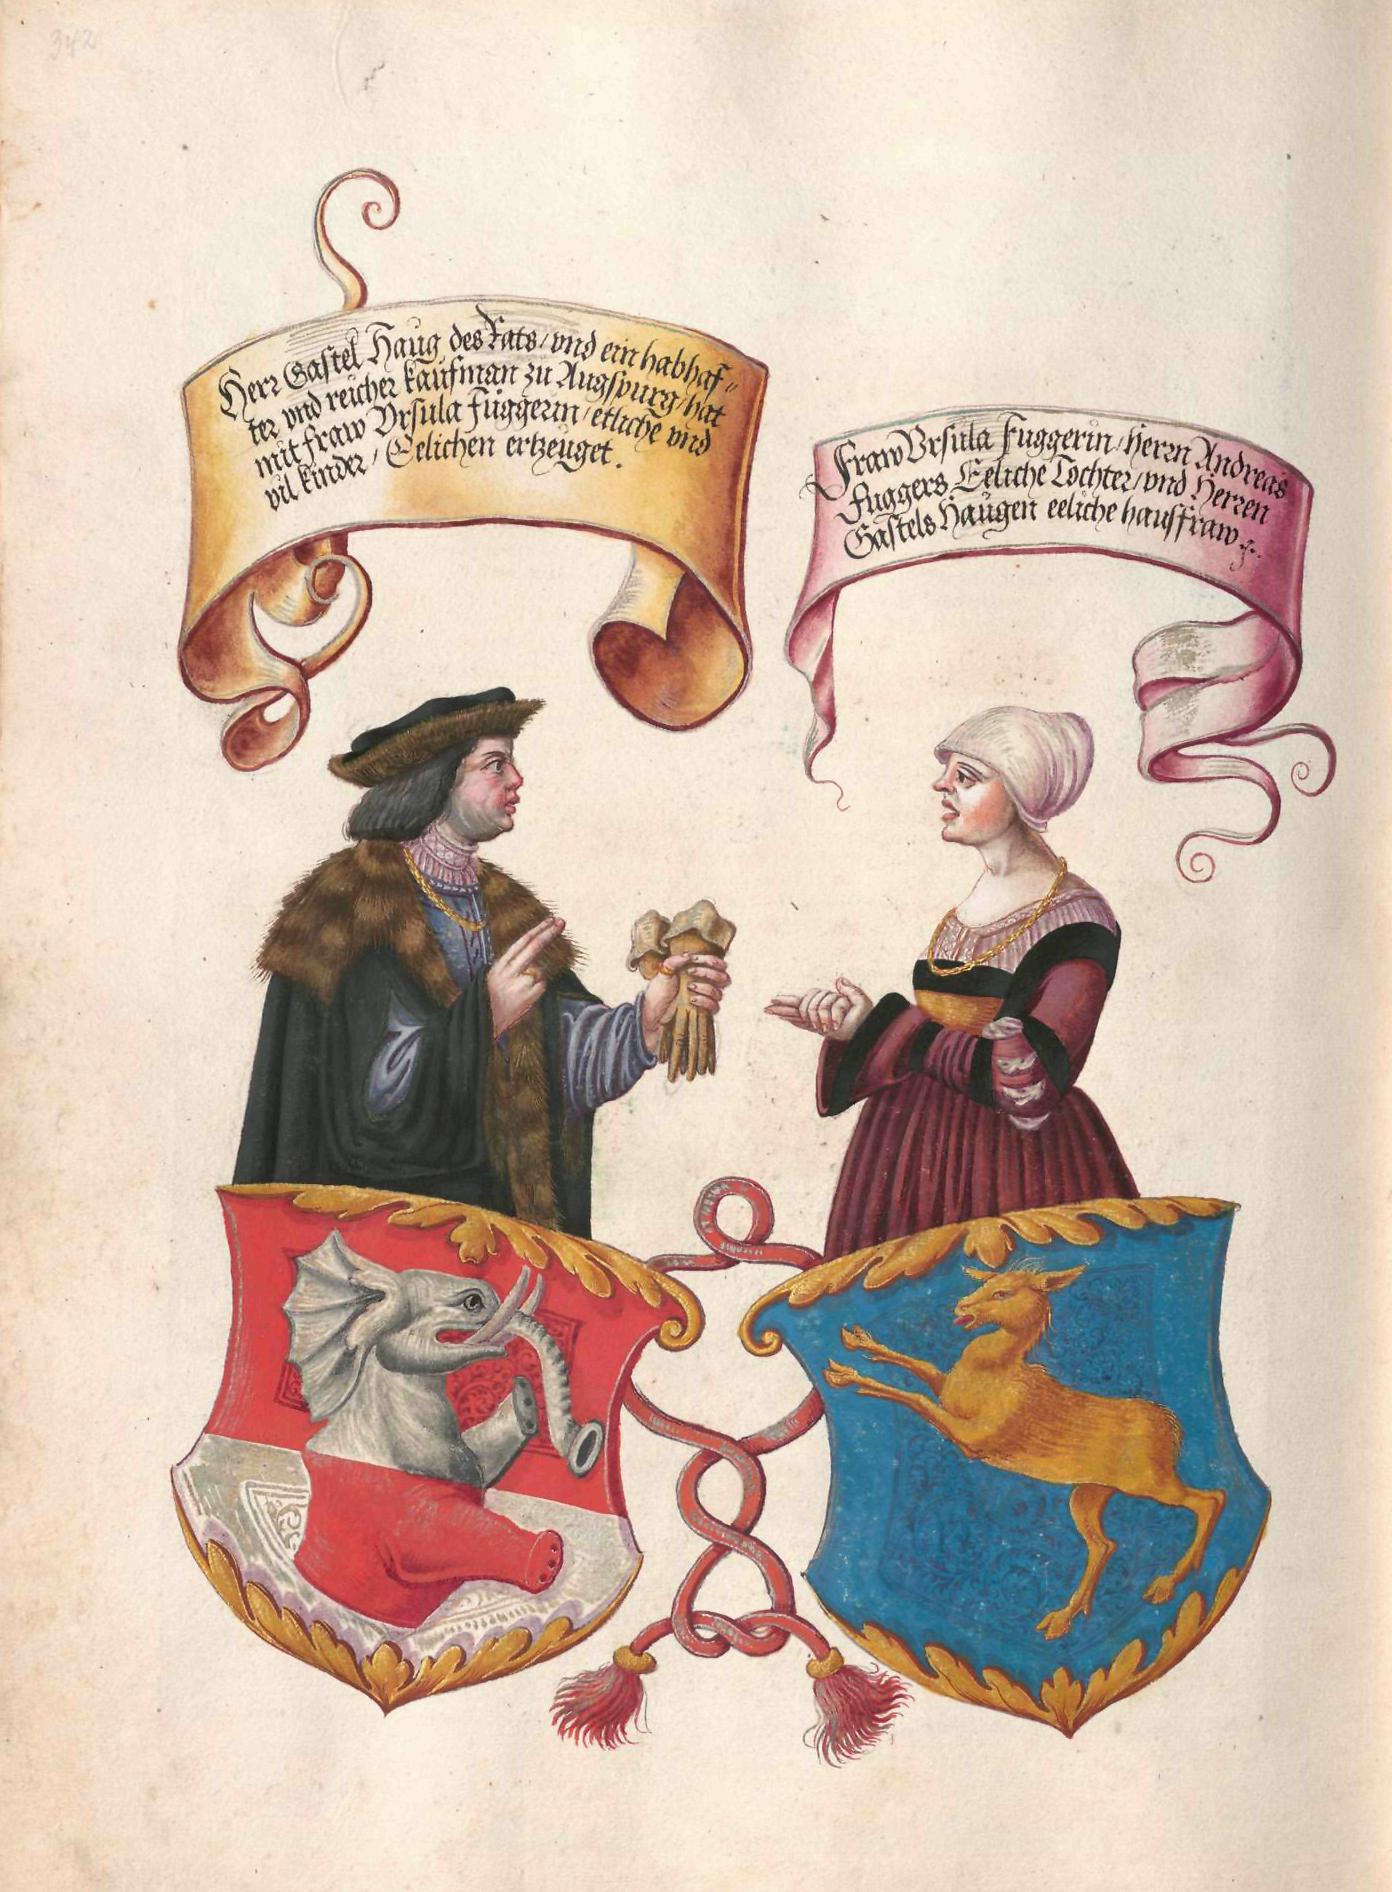 342
Herr Gastel Haug des Rats / vnd ein habhaf-
ter vnd reicher kaufman zu Augspurg / hat
mit fraw Vrsula Fuggerin / etliche vnd
vil kinder / Eelichen ertzeuget.
Fraw Vrsula Fuggerin / Herrn Andreas
Fuggers Eeliche Tochter / vnd Herren
Gastels Haugen eeliche hausfraw